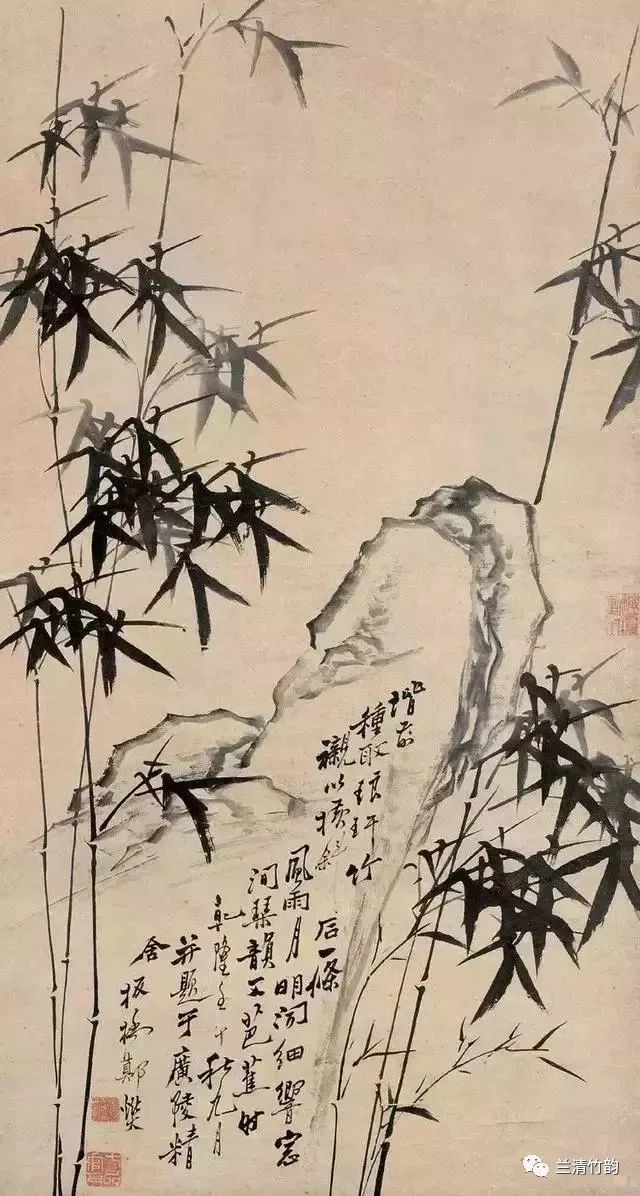 階前
種取琅玕竹
襯以橫斜
石一條
風雨月明聞細響窓
間琴韻芭蕉
乾隆壬午秋九月
并題于廣陵精
舍板橋鄭燮
兰清竹韵